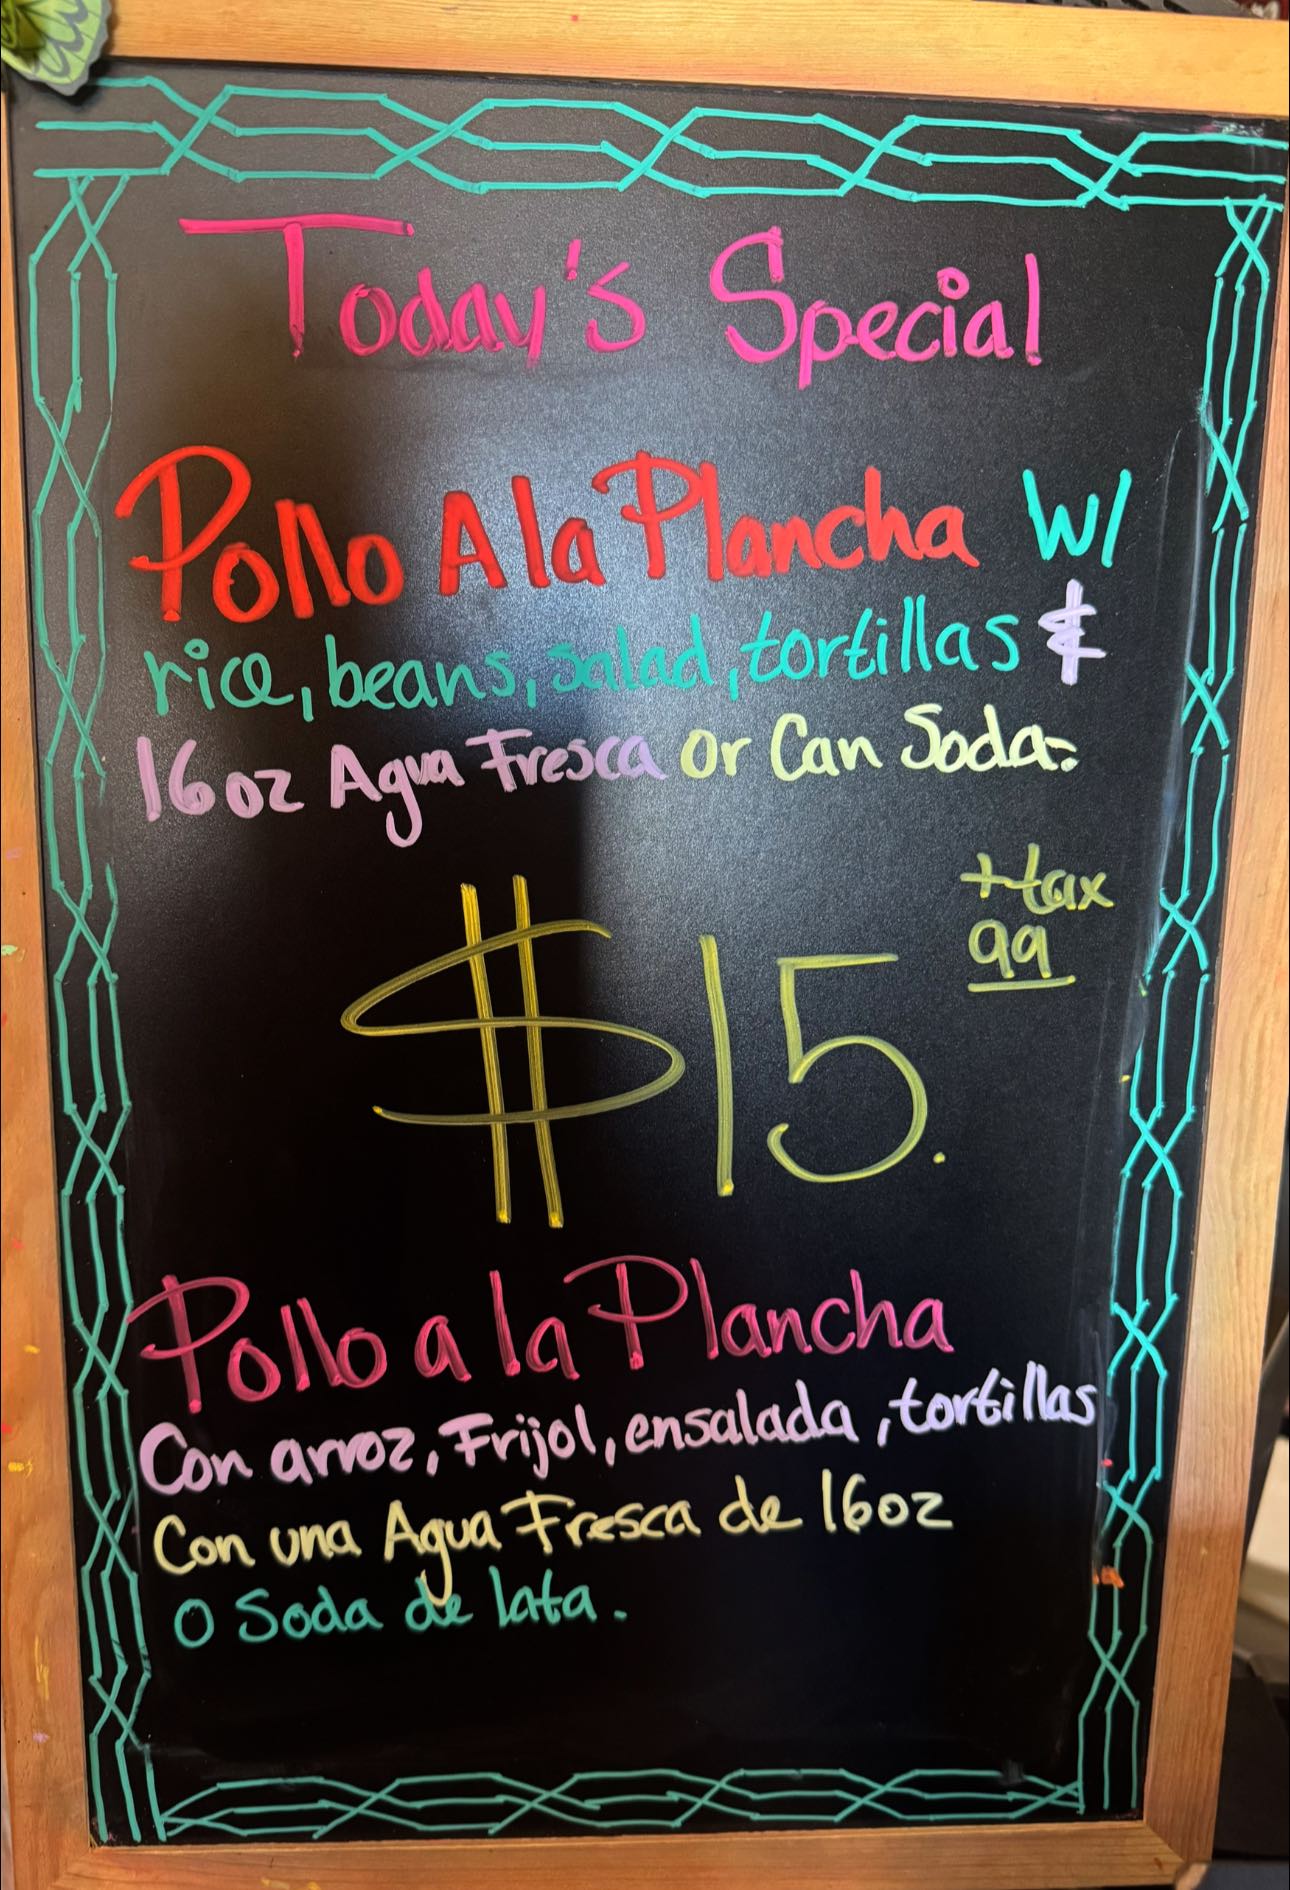 Today's Special
Pollo A la Plancha W/
rice, beans, salad, tortillas &
16oz Agua Fresca or Can Soda:
+tax
$15.99
Pollo a la Plancha
Con arroz, Frijol, ensalada, tortillas
Con una Agua Fresca de 16oz
O Soda de lata.